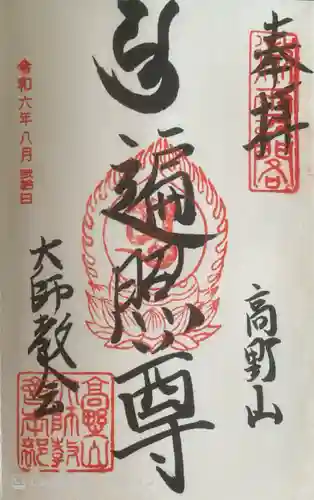 奉拝
高野山
遍照尊
大師教会
令和六年八月弐拾日
高野山
大師教
会本部